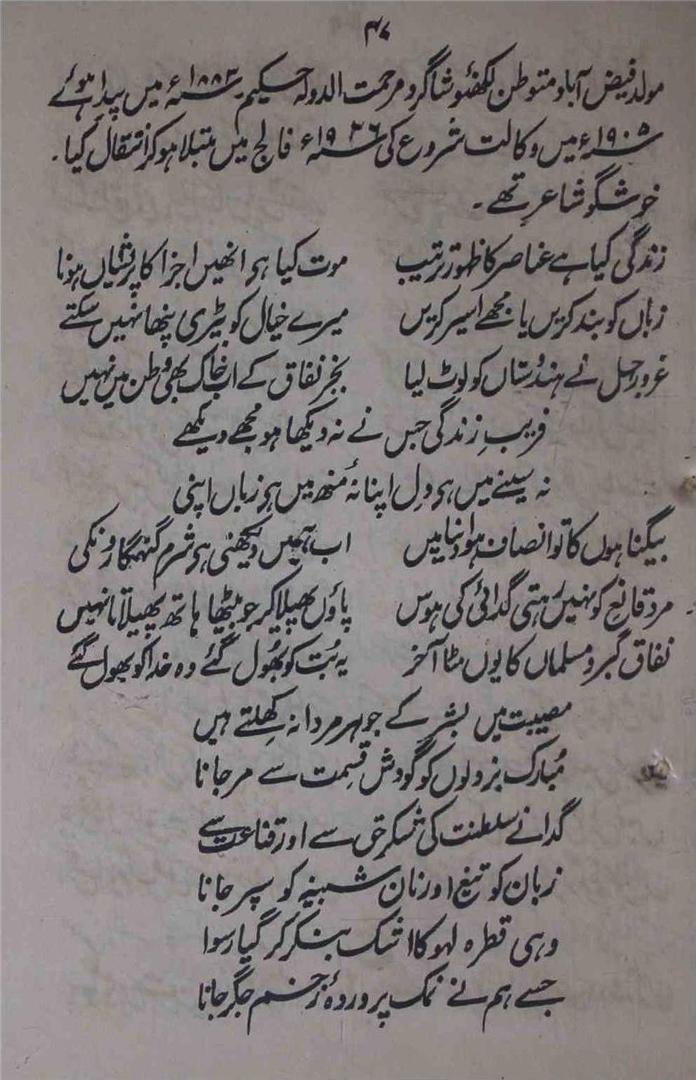 ۴۷
مولد فیض آباد متوطن لکھنؤ شاگرد مرحمت الدولہ حکیم ۱۸۸۳ء میں پیدا ہوئے
۱۹۰۵ء میں وکالت شروع کی ۱۹۲۶ء فالج میں مبتلا ہو کر انتقال کیا۔
خوشگو شاعر تھے۔
زندگی کیا ہے عناصر کا ظہور ترتیب موت کیا ہی انھیں اجزا کا پریشاں ہونا
زباں کو بند کریں یا مجھے اسیر کریں میرے خیال کو بیڑی پنھا نہیں سکتے
غرور جہل نے ہندوستاں کو لوٹ لیا بجز نفاق کے اب خاک بھی وطن میں نہیں
فریب زندگی جس نے نہ دیکھا ہو مجھے دیکھے
نہ سینے میں ہی دل اپنا نہ منھ میں ہی زباں اپنی
بیگناہوں کا تو انصاف ہوا دنیا میں اب ہمیں دیکھنی ہی شرم گنہگارونکی
مرد قانع کو نہیں رہتی گدائی کی ہوس پاؤں پھیلا کر جو بیٹھا ہاتھ پھیلاتا نہیں
نفاق گبر و مسلماں کا یوں مٹا آخر یہ بُت کو بھول گئے وہ خدا کو بھول گئے
مصیبت میں بشر کے جوہر مردانہ کھلتے ہیں
مُبارک بزدلوں کو گردش قسمت سے مر جانا
گدا نے سلطنت کی شکر حق سے اور قناعت سے
زبان کو تیغ اور نان شبینہ کو سپر جانا
وہی قطرہ لہو کا اشک بنکر کر گیا رسوا
جسے ہم نے نمک پروردۂ زخم جگر جانا